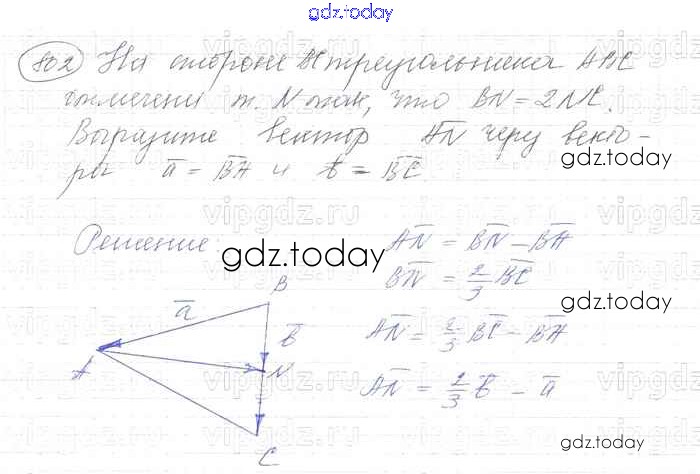 gdz.today
802 На стороне BC треугольника ABC
отмечена т. N так, что BN = 2NC.
Выразите вектор AN через векто-
ры a = BA и b = BC.
gdz.today
Решение:
gdz.today
AN = BN - BA
BN = 2/3 BC
gdz.today
AN = 2/3 BC - BA
AN = 2/3 b - a
B
a
b
A
N
C
gdz.today
vipgdz.ru